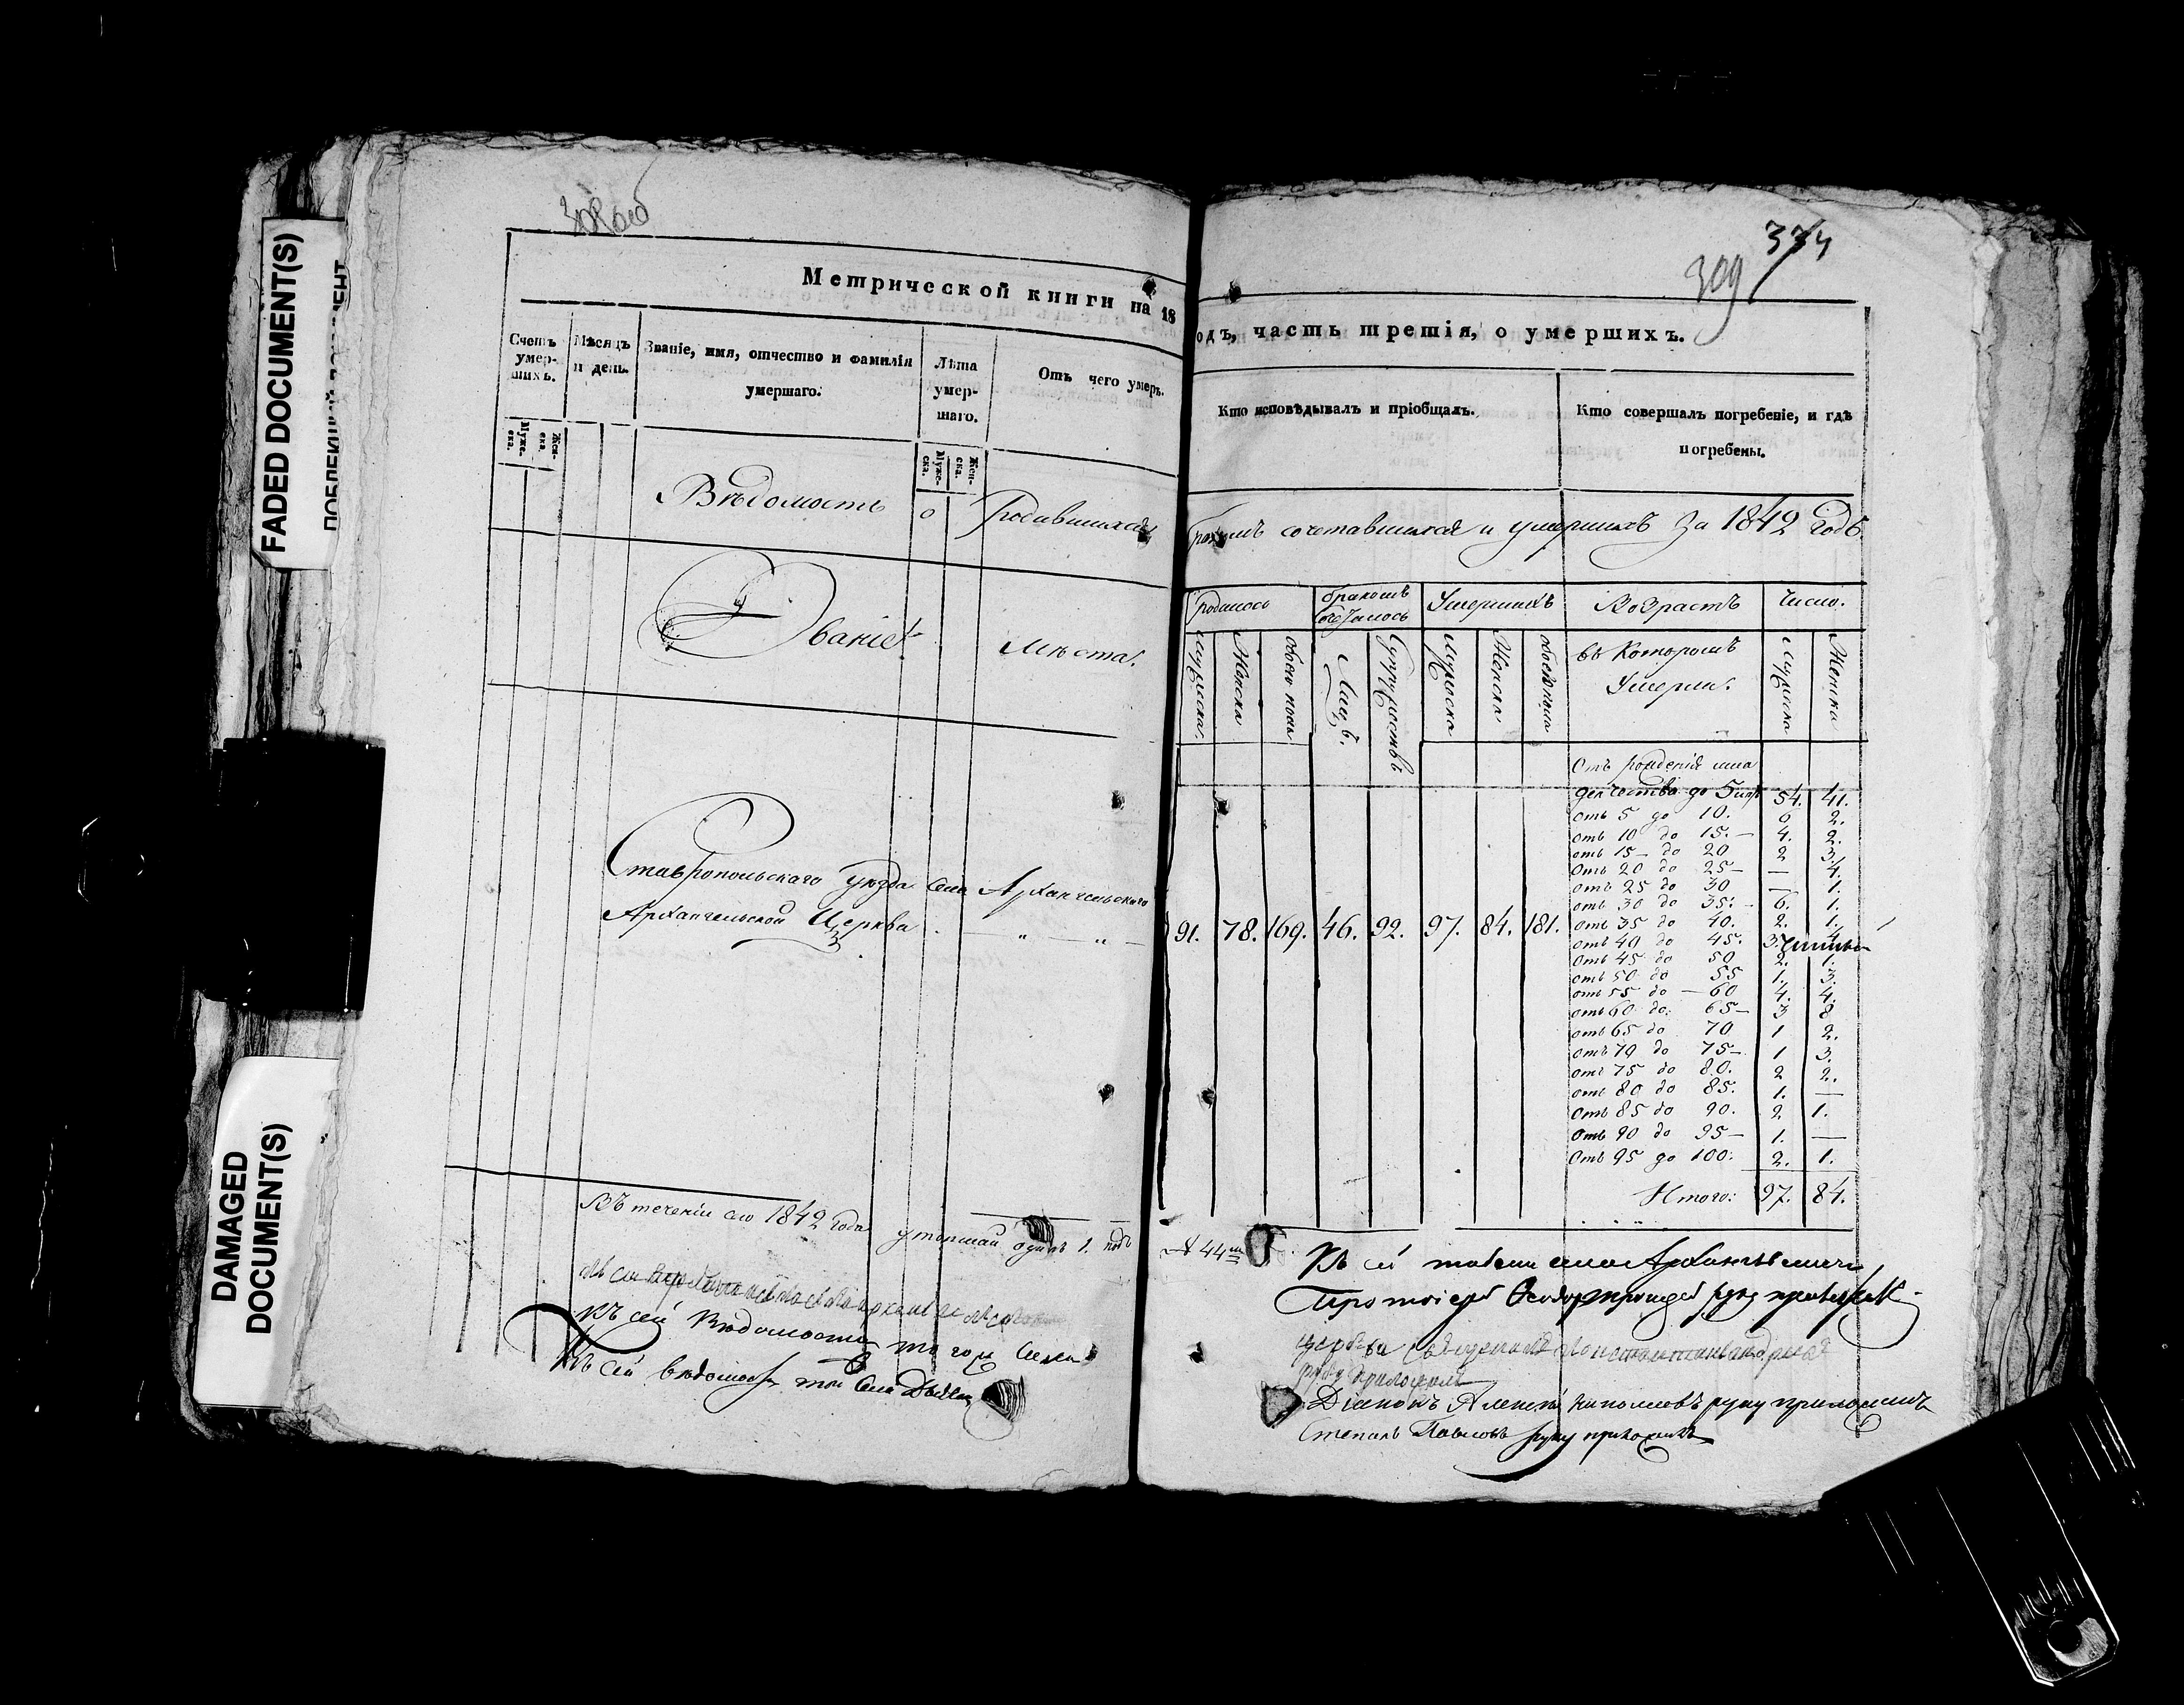 FADED DOCUMENT(S)
DAMAGED
DOCUMENT(S)
308 об
374
309
Метрической книги на 18
одъ, часть третія, о умершихъ.
Счетъ умер- шихъ.
Мѣсяцъ и день.
Званіе, имя, отчество и фамилія умершаго.
Лѣта умер- шаго.
Отъ чего умеръ.
Кто исповѣдывалъ и пріобщалъ.
Кто совершалъ погребеніе, и гдѣ погребены.
Муже- ска.
Жен- ска.
Муже- ска.
Жен- ска.
Вѣдомость о Родившихся
Бракомъ сочетавшихся и умершихъ За 1842 Годъ.
Званіе.
Мѣста.
Родилось
бракомъ
Умершихъ
Возрастъ
Число.
Мужеска.
Женска
обоего пола
Лицъ.
Супружествъ
Мужеска
Женска
обоего пола
въ Которомъ
Умерли.
Мужеска
Женска
Отъ рожденія мла
денчества до 5 54. 41.
отъ 5 до 10. 6 2.
отъ 10 до 15.— 4. 2.
отъ 15— до 20 2 3.
Отъ 20 до 25— — 4.
отъ 25 до 30 — 1.
отъ 30 до 35.— 6. 1.
отъ 35 до 40. 2. 1.
отъ 40 до 45. 3.
отъ 45 до 50 2. 1.
отъ 50 до 55 1. 3.
отъ 55 до — 60 4. 4.
отъ 60 до 65— 3 8
отъ 65 до 70 1 2.
отъ 70 до 75— 1 3.
отъ 75 до 80. 2 2.
отъ 80 до 85. 1. —
Отъ 85 до 90. 2. 1.
Отъ 90 до 95— 1. —
Отъ 95 до 100. 2. 1.
Итого: 97. 84.
Ставропольскаго уѣзда Села Архангельскаго
Архангельской Церква
91. 78. 169. 46. 92. 97. 84. 181.
Въ теченіи сего 1842 года утопшай одинъ 1. подъ
№ 44мъ
Къ сей села
Протоіерей Ѳеодоръ руку приложилъ
Къ сей Вѣдомости того Села
руку приложилъ
Къ сей вѣдомости той Села Дьяконъ
Діаконъ Алексей руку приложилъ
Степанъ Павловъ руку приложилъ